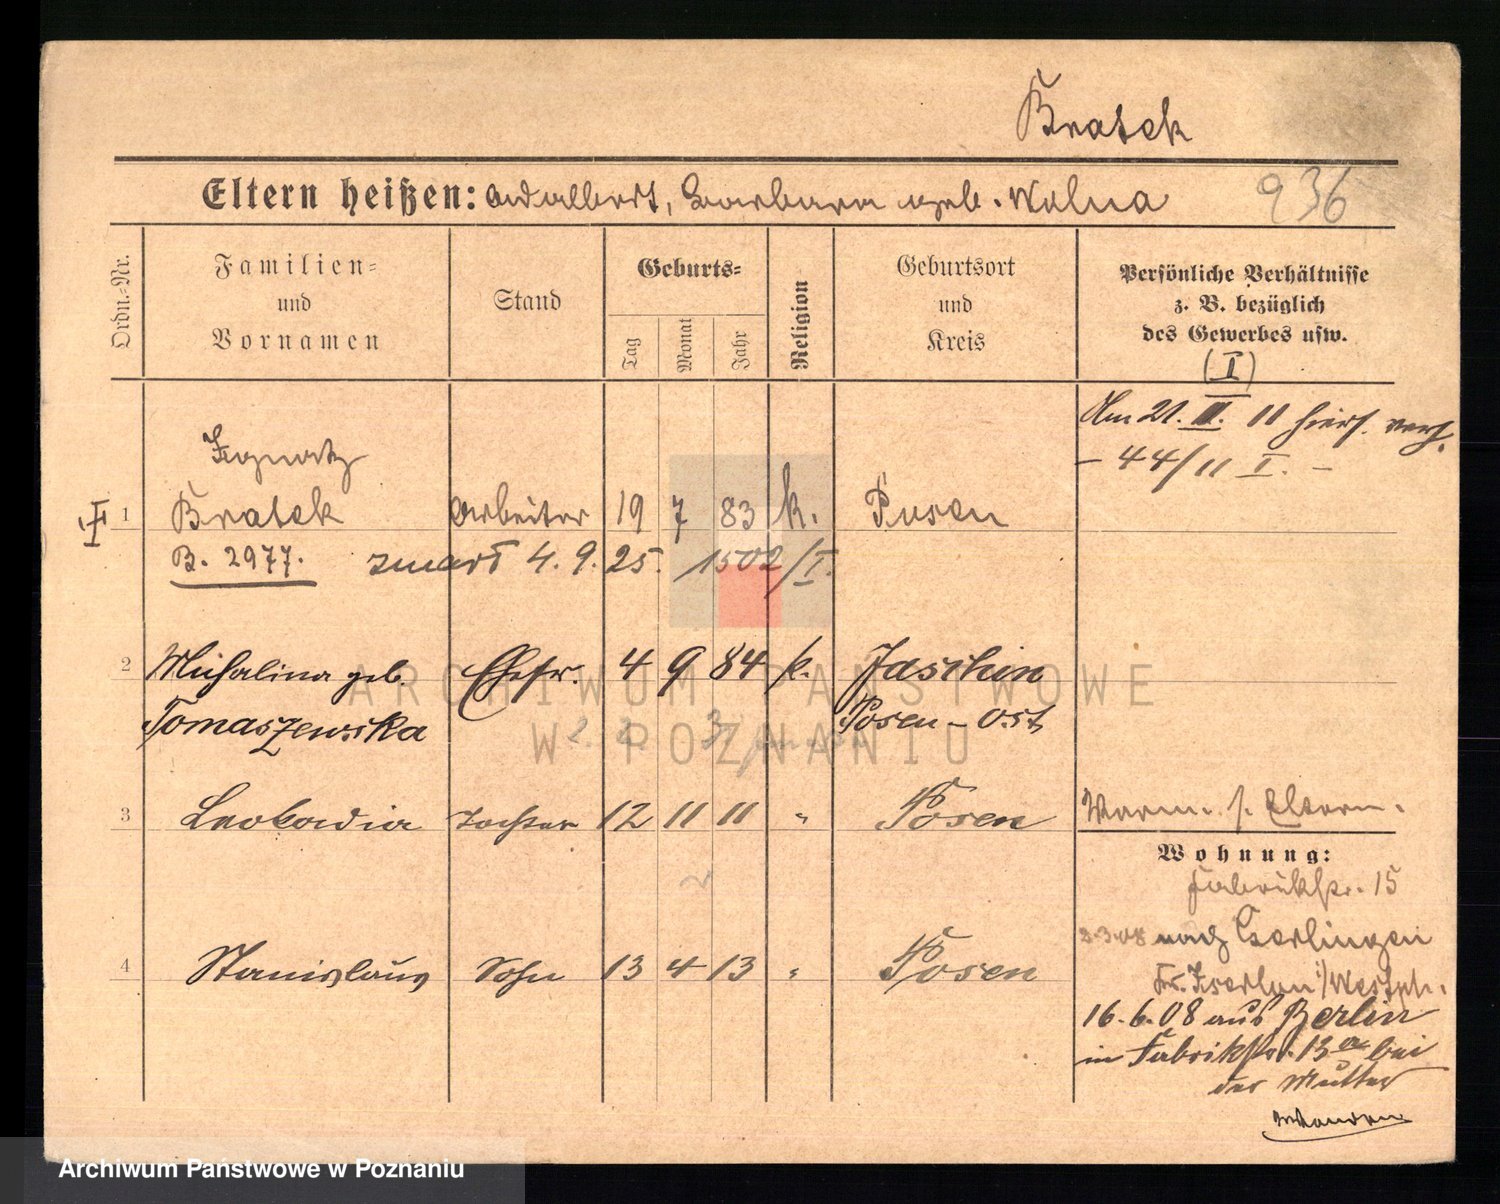 Bratek
Eltern heißen: Adalbert, Barbara geb. Wolna 936
Ordn.-Nr.
Familien- und Vornamen
Stand
Geburts-
Tag
Monat
Jahr
Religion
Geburtsort und Kreis
Persönliche Verhältnisse
z. B. bezüglich
des Gewerbes usw.
(I)
Am 21. II. 11 hier verh.
- 44/11 I. -
Ignatz
1 Bratek Arbeiter 19 7 83 k. Posen
B. 2977. 4. 9. 25. 1502/I.
2 Michalina geb. Ehefr. 4 9 84 k. Jaschin
Tomaszewska Posen-Ost
3 Leokadia Tochter 12 11 11 " Posen
Wohnung:
Fabrikstr. 15
4 Stanislaus Sohn 13 4 13 " Posen
2.3.08 nach
Kr. Iserlon i/Westph.
16.6.08 aus Berlin
in Fabrikstr. 13 bei
der Mutter
ARCHIWUM PAŃSTWOWE
W POZNANIU
Archiwum Państwowe w Poznaniu